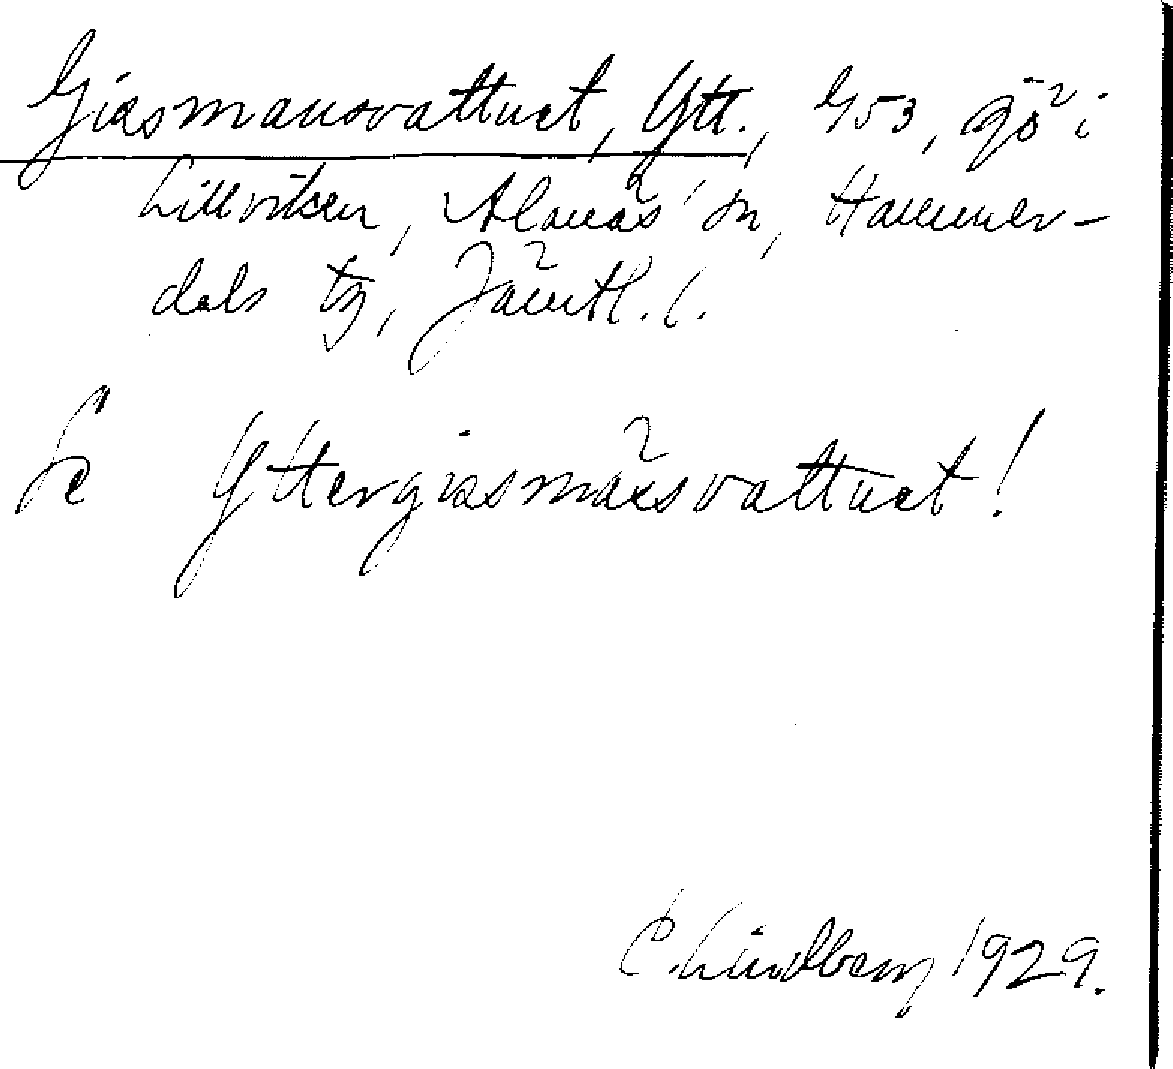 Gissmansvattnet, Ytt., G53, sjö i
Lillviken, Alanäs sn, Hammer-
dals tg, Jämtl. l.
Se Yttergissmansvattnet!
C. Lindberg 1929.